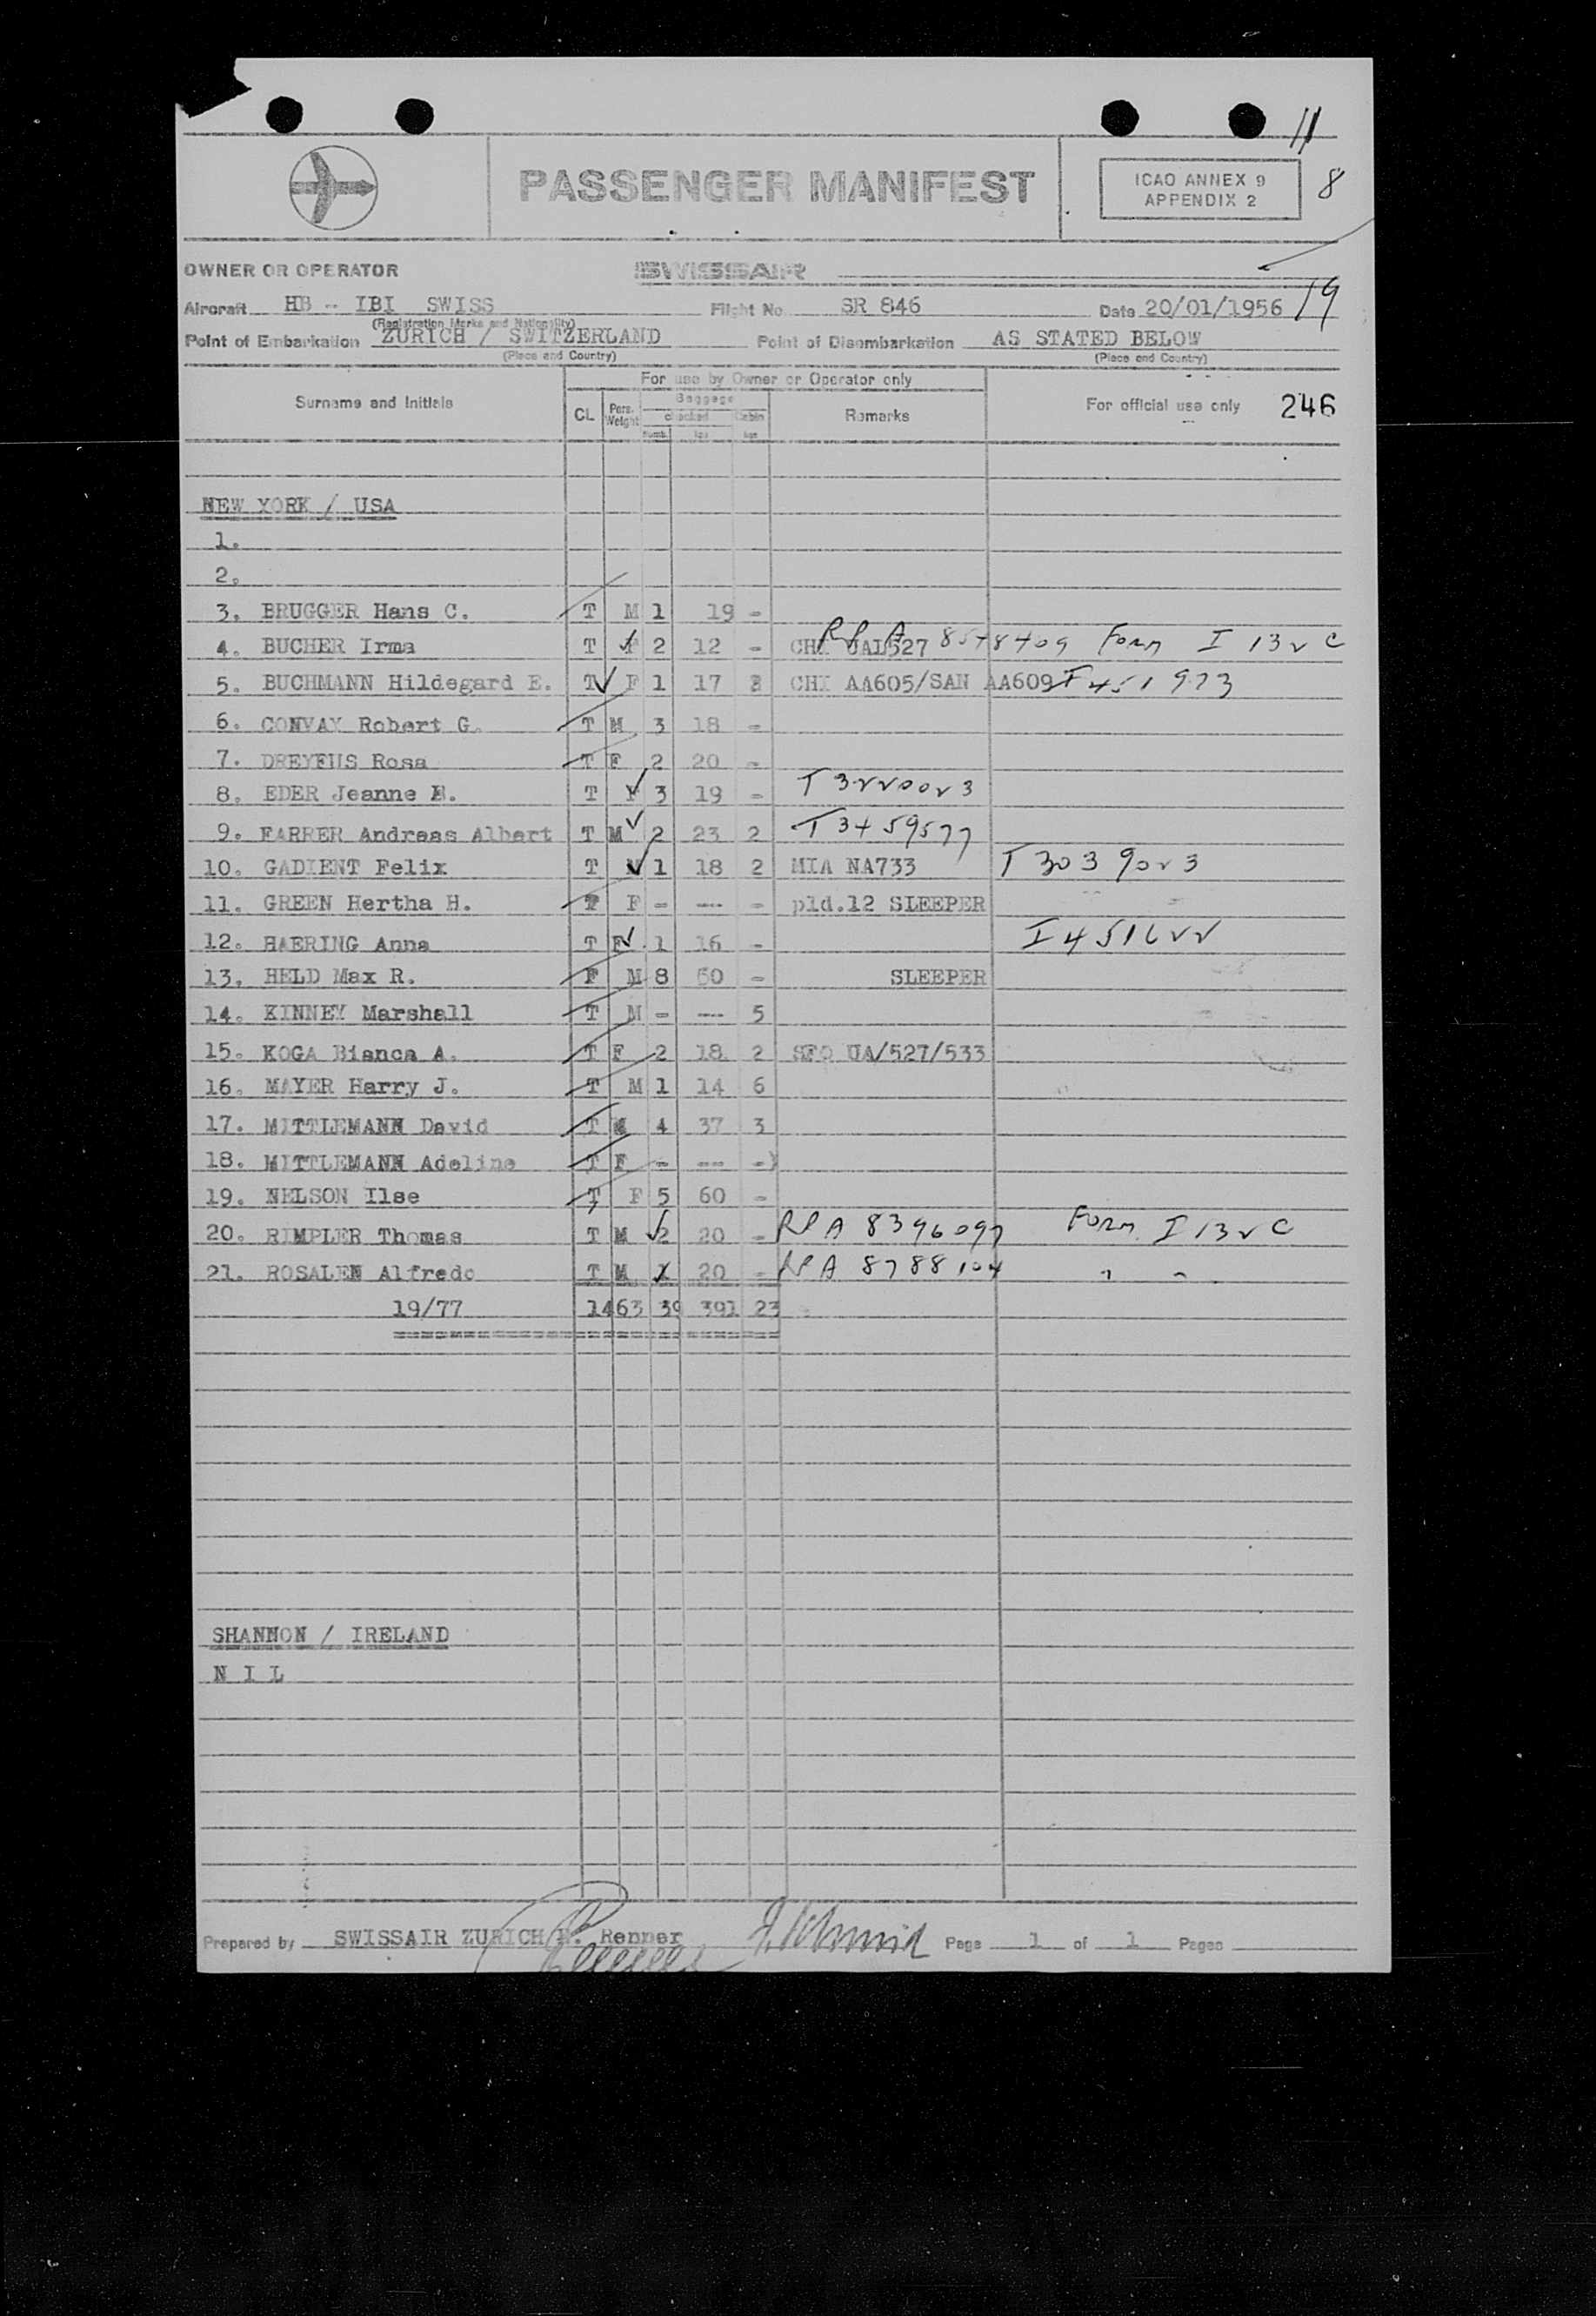 11
PASSENGER MANIFEST
ICAO ANNEX 9
APPENDIX 2
8
OWNER OR OPERATOR SWISSAIR
Aircraft HB - IBI SWISS Flight No. SR 846 Date 20/01/1956 19
(Registration Marks and Nationality)
Point of Embarkation ZURICH / SWITZERLAND Point of Disembarkation AS STATED BELOW
(Place and Country) (Place and Country)
For use by Owner or Operator only
Surname and Initials CL Pers. Weight Baggage checked Cabin Remarks For official use only 246
Numb. kgs kgs
NEW YORK / USA
1.
2.
3. BRUGGER Hans C. T M 1 19 -
4. BUCHER Irma T F 2 12 - CHI UAL527 RP A 8578409 Form I 132 C
5. BUCHMANN Hildegard E. T F 1 17 CHI AA605/SAN AA609 I 451973
6. CONVAY Robert G. T M 3 18 -
7. DREYFUS Rosa T F 2 20 -
8. EDER Jeanne T F 3 19 - T 3220023
9. FARRER Andreas Albert T M 2 23 2 T 3459577
10. GADIENT Felix T M 1 18 2 MIA NA733 T 3039023
11. GREEN Hertha H. F F - --- - pld.12 SLEEPER
12. HAERING Anna T F 1 16 - I 451622
13. HELD Max R. F M 8 50 - SLEEPER
14. KINNEY Marshall T M - --- 5
15. KOGA Bianca A. T F 2 18 2 SFO UA/527/533
16. MAYER Harry J. T M 1 14 6
17. MITTLEMANN David T M 4 37 3
18. MITTLEMANN Adeline T F - --- -
19. NELSON Ilse T F 5 60 -
20. RIMPLER Thomas T M 2 20 - RP A 8396097 Form I 132 C
21. ROSALEN Alfredo T M 20 - RP A 8788104 " "
19/77 1463 39 391 23
SHANNON / IRELAND
N I L
Prepared by SWISSAIR ZURICH Renner Page 1 of 1 Pages